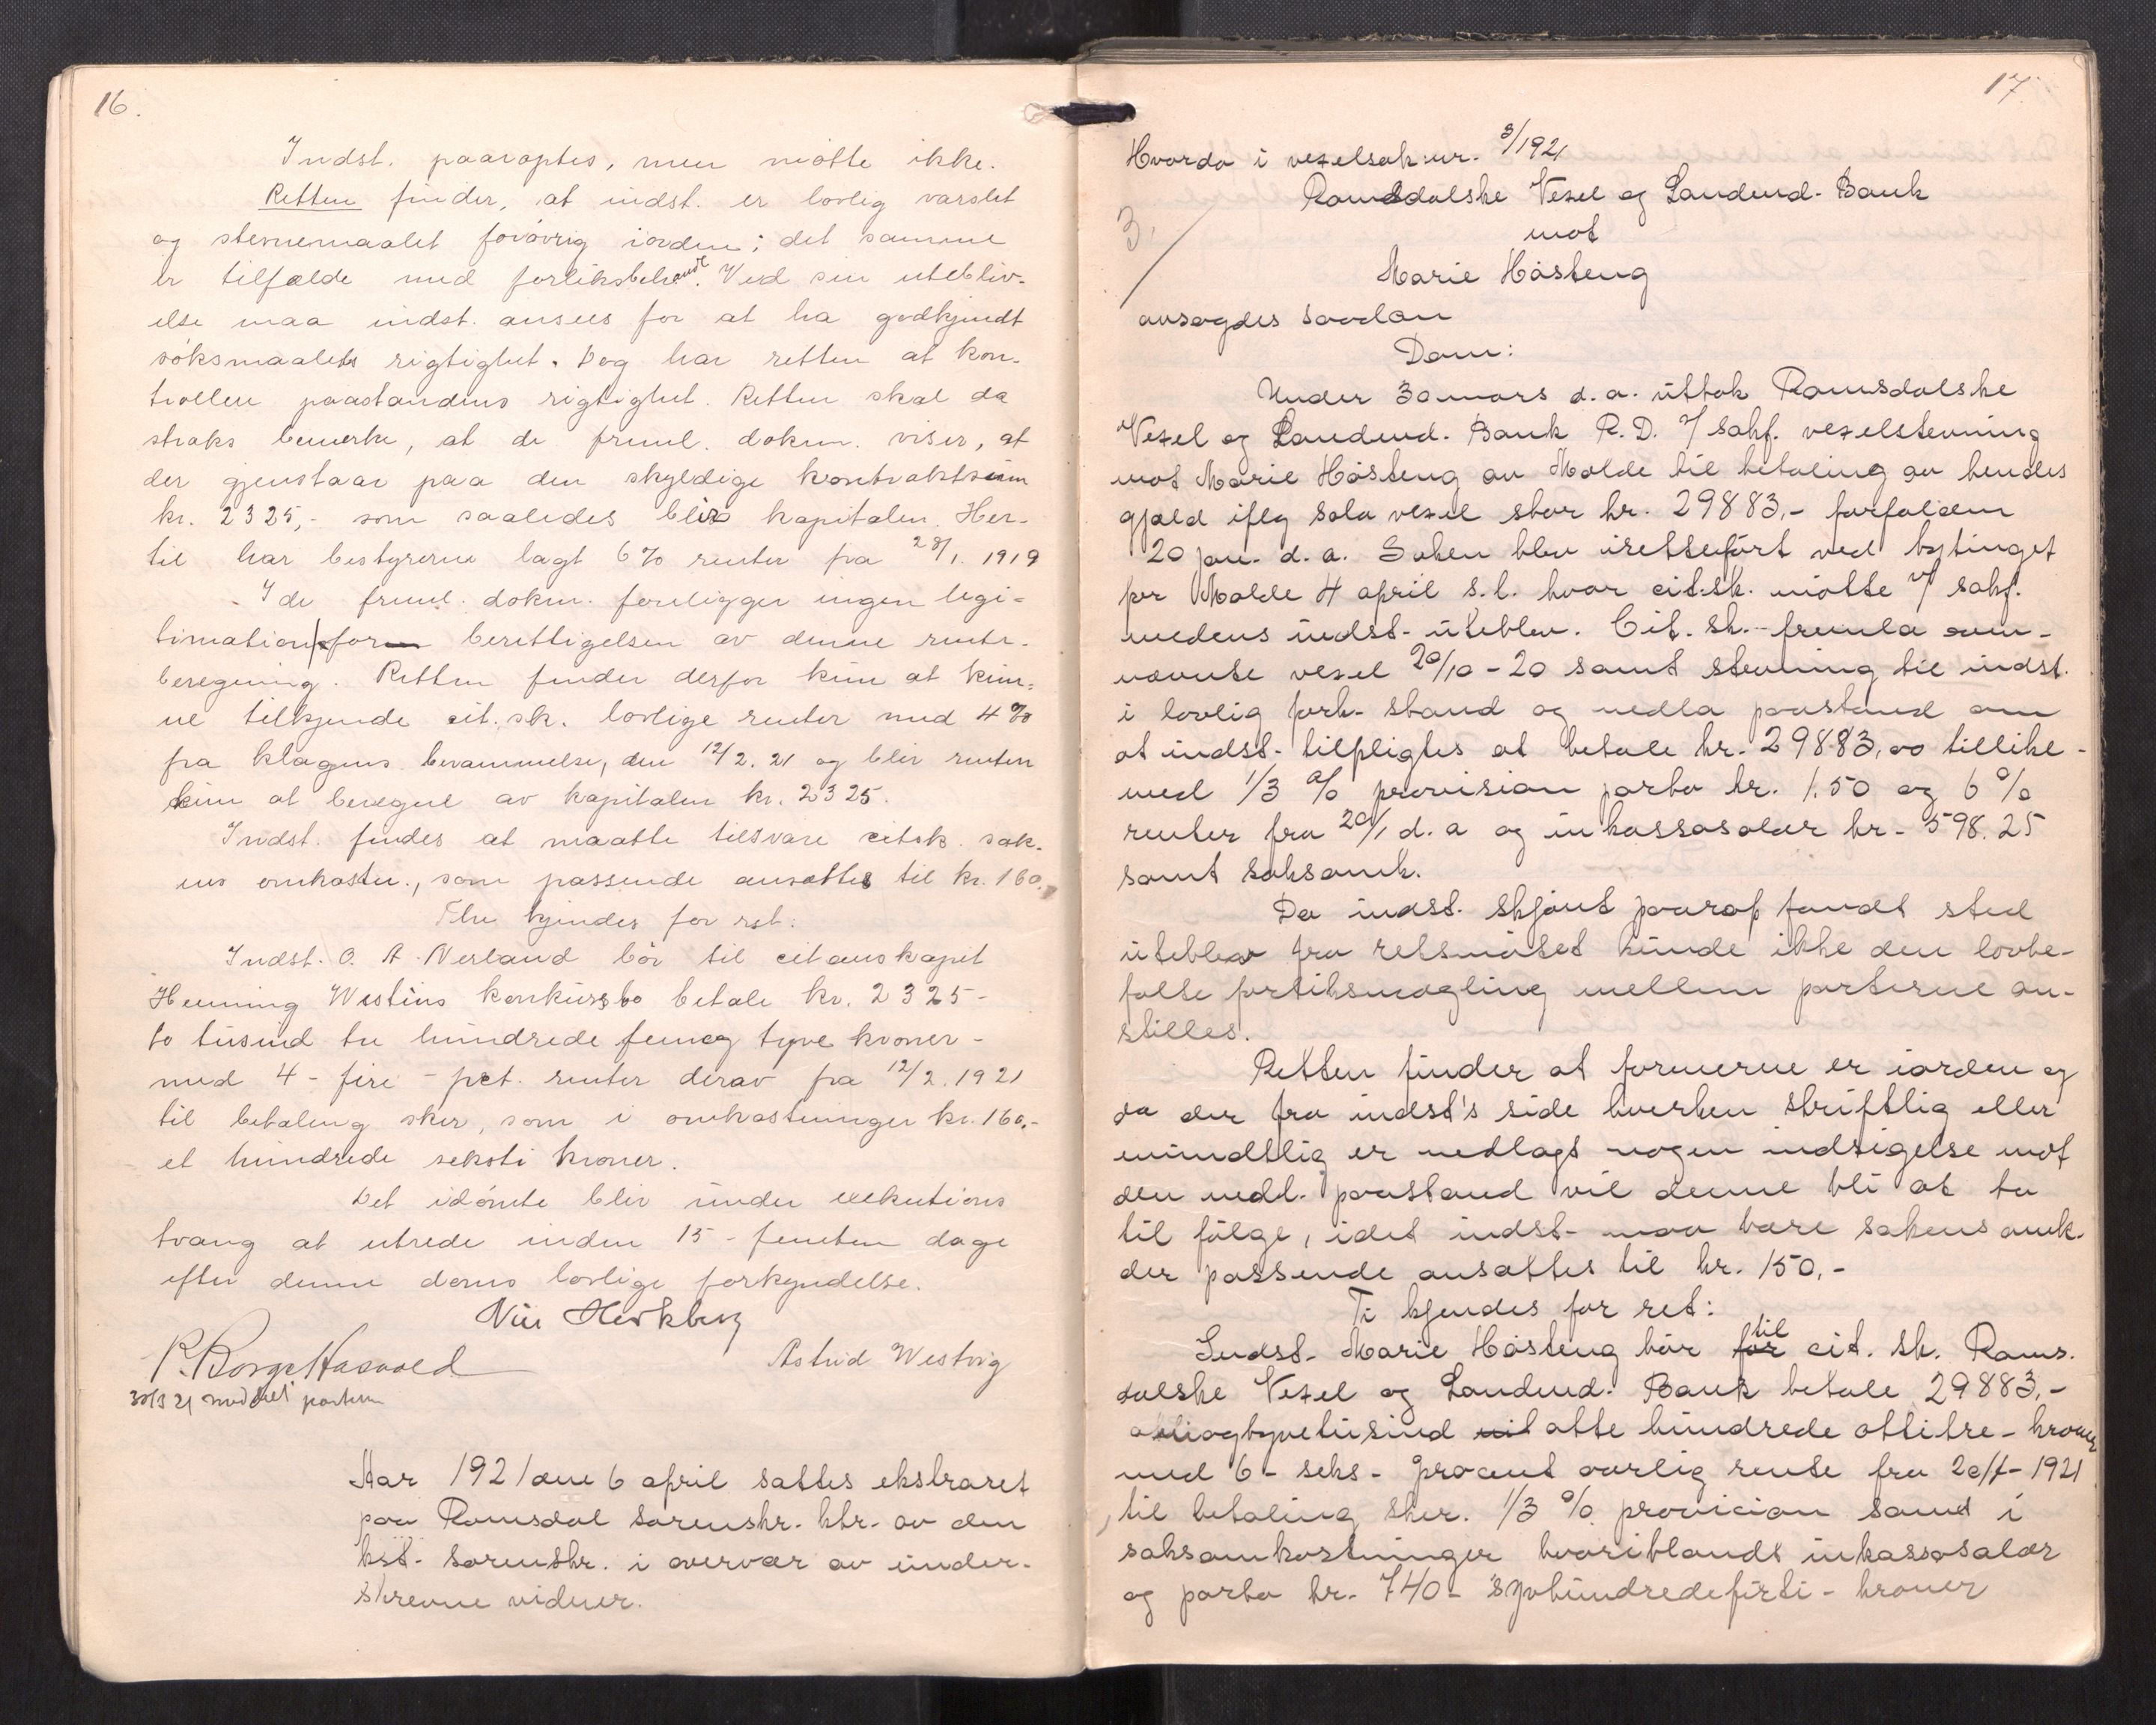 16.
Indst. paaroptes, men mötte ikke.
Retten finder, at indst. er lovlig varslet
og stevnemaalet forövrig iorden; det samme
er tilfælde med forliksbehandl. Ved sin utebliv-
else maa indst. ansees for at ha godkjendt
söksmaalets rigtighet. Dog har retten at kon-
trollere paastandens rigtighet. Retten skal da
straks bemerke, at de freml. dokum. viser, at
der gjenstaar paa den skyldige kontraktsum
kr. 2325,- som saaledes blir kapitalen. Her-
til har bestyrerne lagt 6 % renter fra 28/1. 1919
I de freml. dokm. foreligger ingen legi-
timation for berettigelsen av denne rente-
beregning. Retten finder derfor kun at kun-
ne tilkjende cit. sk. lovlige renter med 4 %
fra klagens berammelse, den 12/2. 21 og blir renten
kun at beregne av kapitalen kr. 2325.
Indst. findes at maatte tilsvare citsk. sak-
ens omkostn., som passende ansættes til kr. 160.
Thi kjendes for ret:
Indst. O. A. Nerland bör til citanskapet
Henning Westins konkursbo betale kr. 2325-
to tusind tre hundrede femog tyve kroner-
med 4 - fire - pct. renter derav fra 12/2. 1921
til betaling sker, som i omkostninger kr. 160.-
et hundrede seksti kroner.
Det idömte blir under exekutions
tvang at utrede inden 15 - femten dage
efter denne doms lovlige forkyndelse.
Astrid Westvig
30/3 21 meddelt parterne
Aar 1921 den 6 april sattes ekstraret
paa Romsdal sorenskr. ktr. av den
kst. sorenskr. i overvær av under-
skrevne vidner.
17.
Hvorda i vexelsak nr. 3/1921
Romsdalske Vexel og Landmd. Bank
3.
mot
Marie Hösteng
avsagdes saadan
Dom:
Under 30 mars d.a. uttok Romsdalske
Vexel og Landmd. Bank R.D. v/ sakf. vexelstevning
mot Marie Hösteng av Molde til betaling av hendes
gjæld iflg sola vexel stor kr. 29883,- forfalden
20 jan. d.a. Saken blev iretteført ved bytinget
for Molde 4 april s.l. hvor cit.sk. mötte v/ sakf.
medens indst. uteblev. Cit. sk. fremla om-
nævnte vexel 20/10 - 20 samt stevning til indst.
i lovlig fork. stand og nedla paastand om
at indst. tilpligtes at betale kr. 29883,00 tillike-
med 1/3 % provision porto kr. 1.50 og 6 %
renter fra 20/1 d.a og inkassosalær kr. 598.25
samt saksomk.
Da indst. skjönt paarop fandt sted
uteblev fra retsmötet kunde ikke den lovbe-
falte forliksmægling mellem parterne an-
stilles.
Retten finder at formerne er iorden og
da der fra indst's side hverken skriftlig eller
mundtlig er nedlagt nogen indsigelse mot
den nedl. paastand vil denne bli at ta
til fölge, idet indst. maa bære sakens omk.
der passende ansættes til kr. 150,-
Ti kjendes for ret:
Indst. Marie Hösteng bör for til cit. sk. Roms-
dalske Vexel og Landmd. Bank betale 29883,-
niogtyvetusind atte hundrede ottitre- kroner
med 6 - seks - procent aarlig rente fra 20/1 - 1921
til betaling sker. 1/3 % provicion samt i
saksomkostninger hvoriblandt inkassosalær
og porto kr. 740- syvhundredefirti - kroner